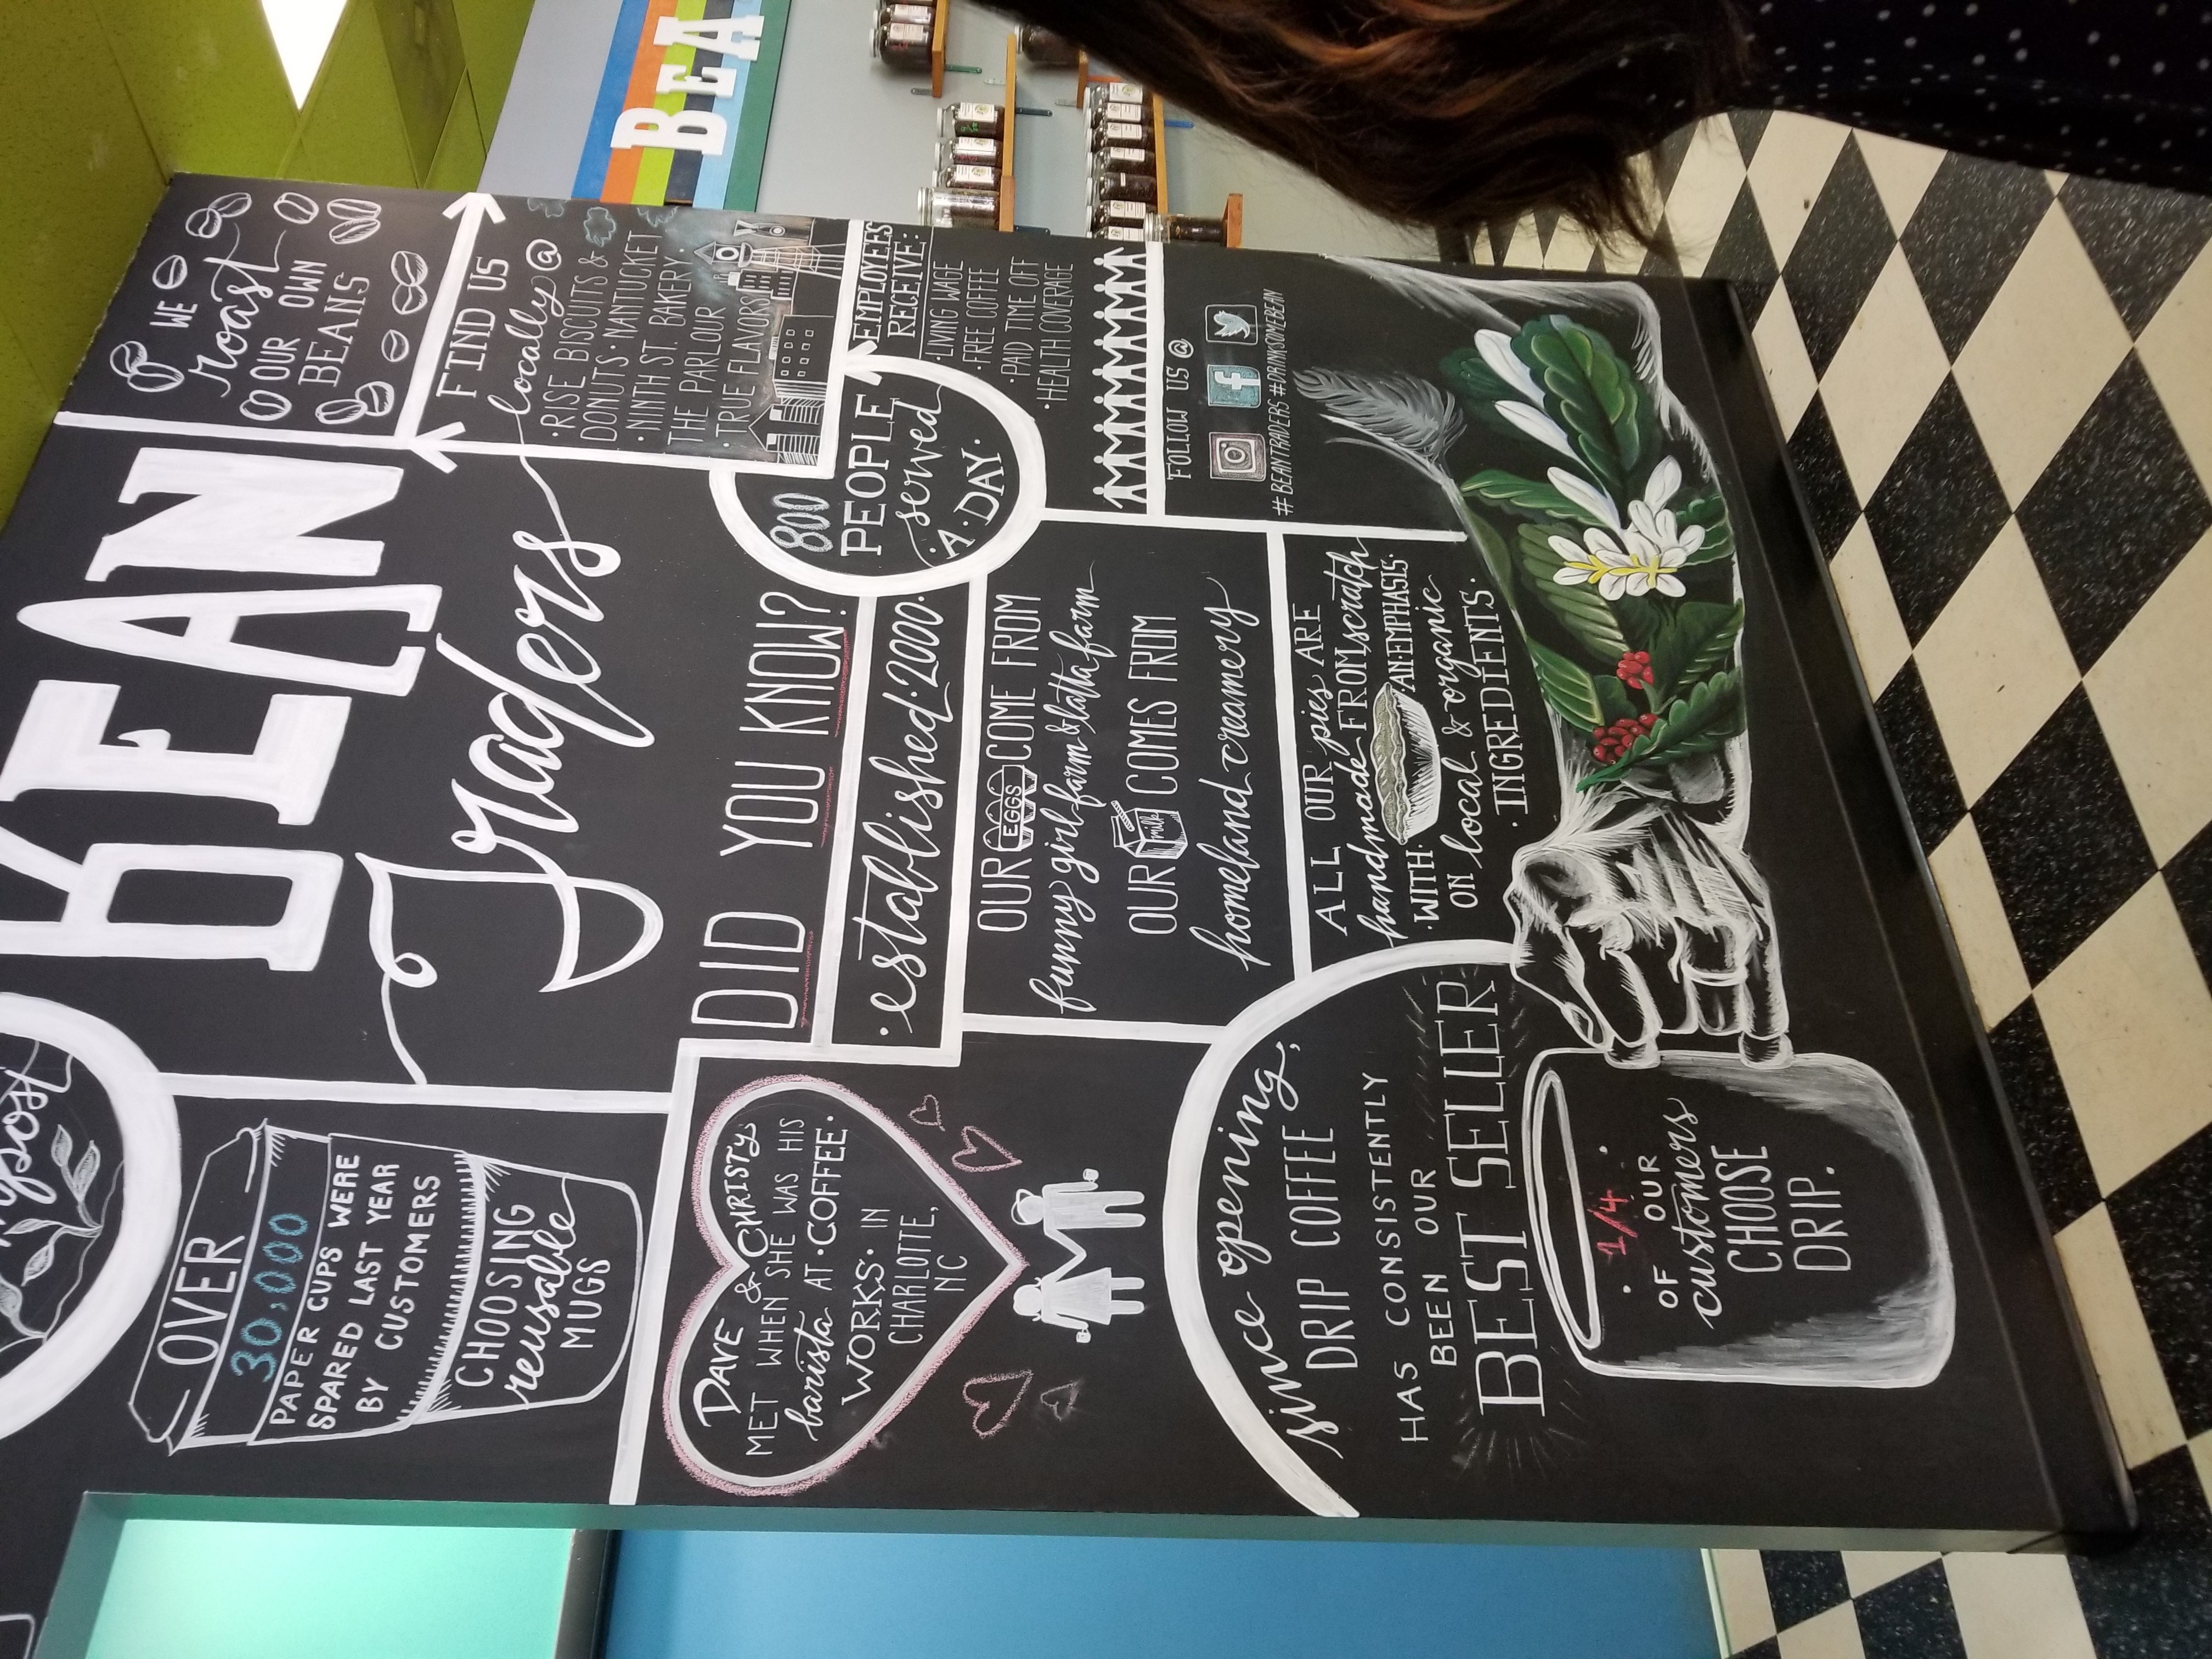 BEAN
Traders
WE
roast
OUR OWN
BEANS
FIND US
locally @
·RISE BISCUITS &
DONUTS·NANTUCKET
·NINTH ST. BAKERY·
THE PARLOUR
·TRUE FLAVORS
OVER
30,000
PAPER CUPS WERE
SPARED LAST YEAR
BY CUSTOMERS
CHOOSING
reusable
MUGS
DID YOU KNOW?
·established·2000·
800
PEOPLE
served
·A·DAY·
EMPLOYEES
RECEIVE:
·LIVING WAGE
·FREE COFFEE
·PAID TIME OFF
·HEALTH COVERAGE
DAVE & CHRISTY
MET WHEN SHE WAS HIS
barista AT·COFFEE·
WORKS· IN
CHARLOTTE,
NC
OUR EGGS COME FROM
funny girl farm & latta farm
OUR milk COMES FROM
homeland creamery
FOLLOW US @
f
#BEANTRADERS #DRINKSOMEBEAN
ALL OUR pies ARE
handmade FROM scratch
·WITH· ·AN·EMPHASIS·
ON local & organic
·INGREDIENTS·
since opening,
DRIP COFFEE
HAS CONSISTENTLY
BEEN OUR
BEST SELLER
·1/4·
OF OUR
customers
CHOOSE
DRIP.
BEA